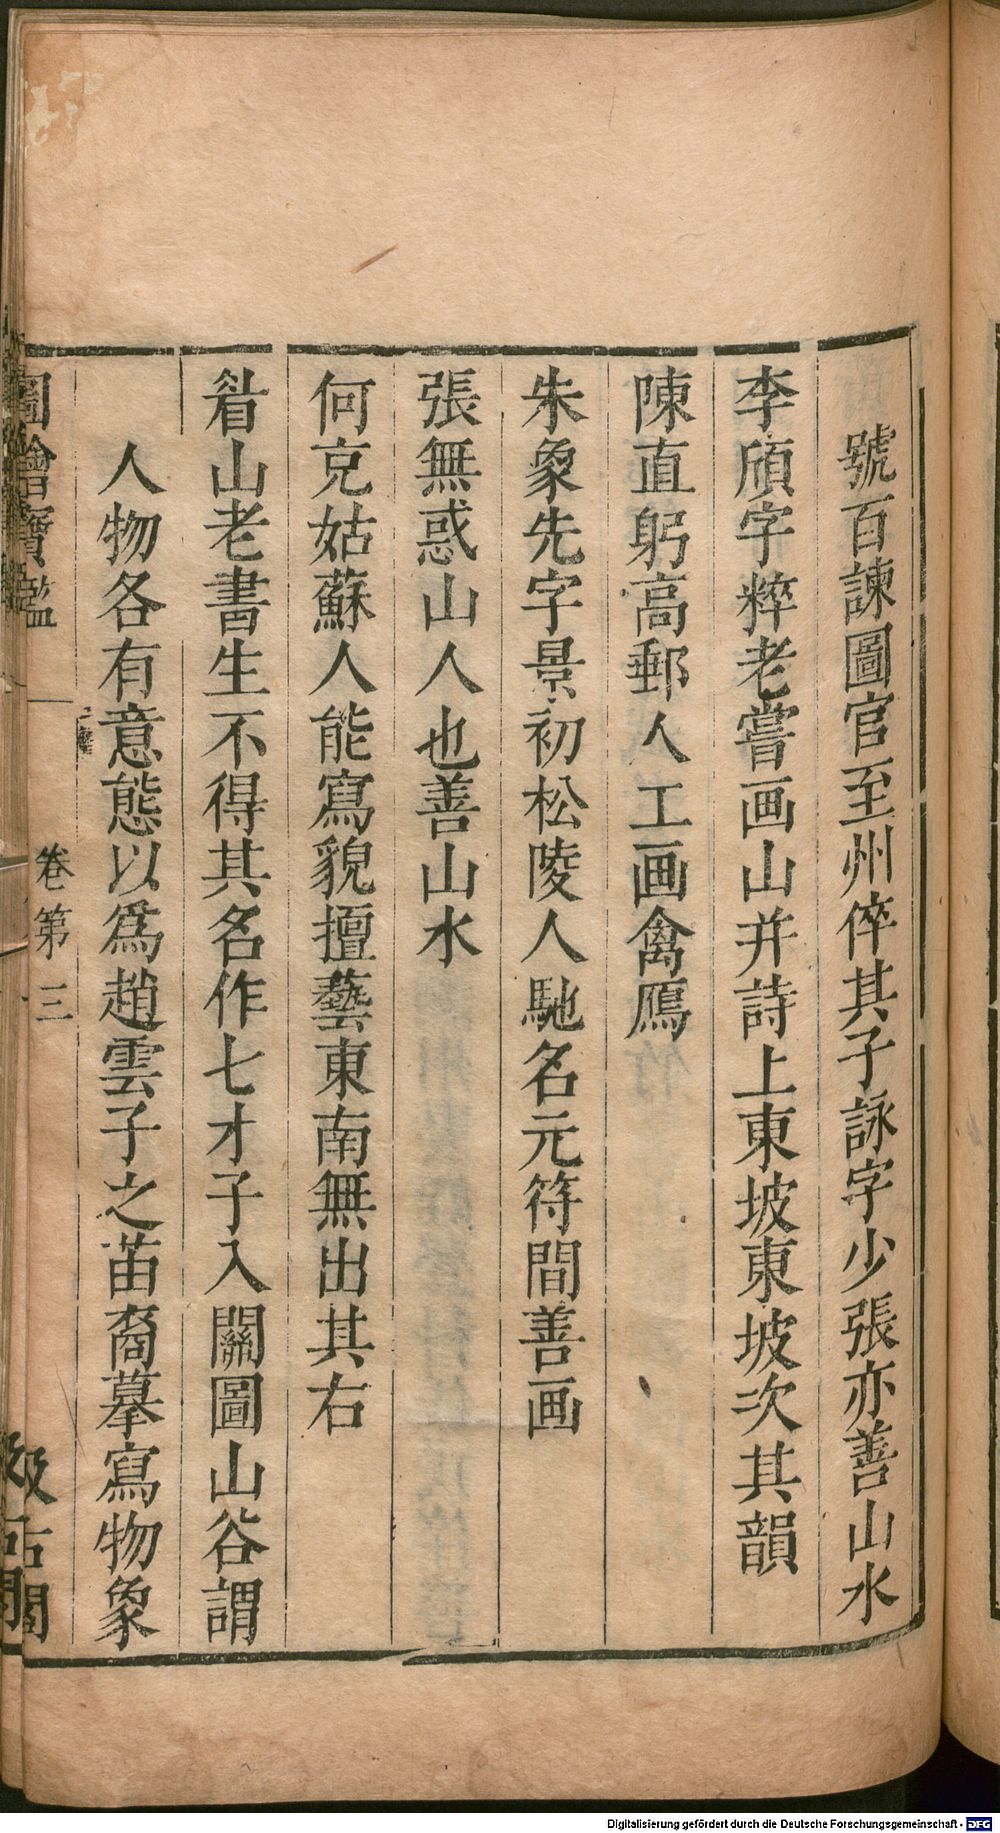 號百諫圖官至州倅其子詠字少張亦善山水
李頎字粹老嘗画山并詩上東坡東坡次其韻
陳直躬高郵人工画禽鴈
朱象先字景初松陵人馳名元符間善画
張無惑山人也善山水
何充姑蘇人能寫貌擅藝東南無出其右
眉山老書生不得其名作七才子入關圖山谷謂
人物各有意態以爲趙雲子之苗裔摹寫物象
圖繪寶鑑
卷第三
汲古閣
Digitalisierung gefördert durch die Deutsche Forschungsgemeinschaft - DFG